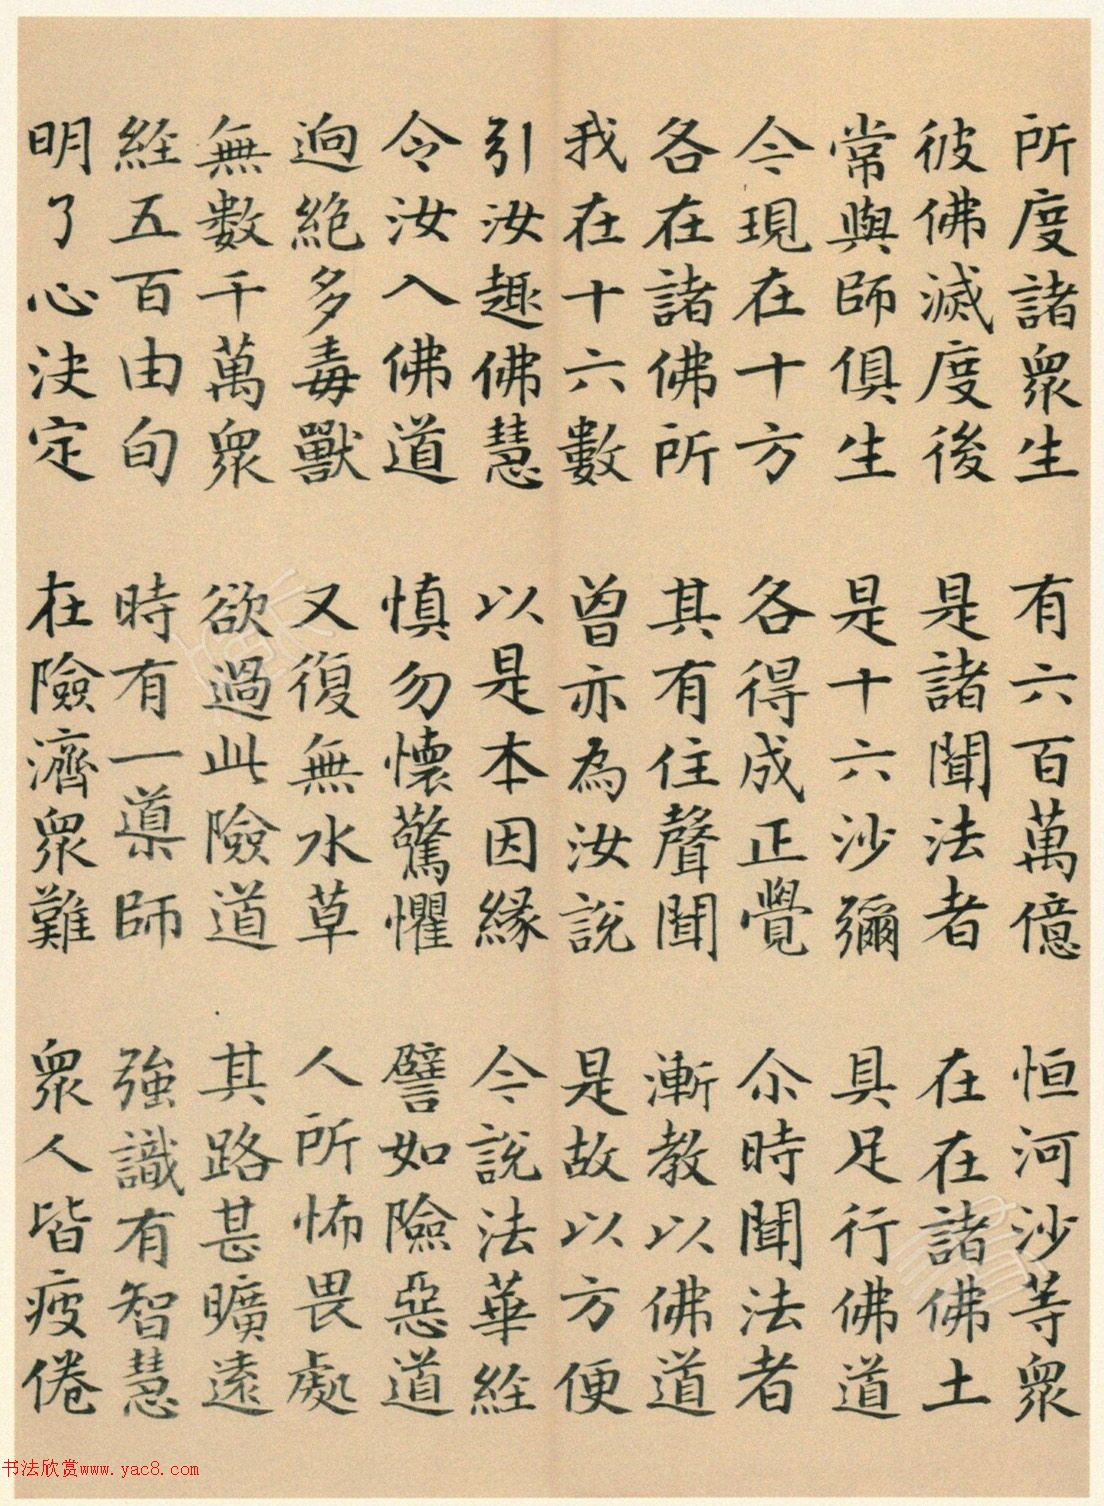 所度諸眾生 有六百萬億 恒河沙等眾
彼佛滅度後 是諸聞法者 在在諸佛土
常與師俱生 是十六沙彌 具足行佛道
今現在十方 各得成正覺 尒時聞法者
各在諸佛所 其有住聲聞 漸教以佛道
我在十六數 曾亦為汝說 是故以方便
引汝趣佛慧 以是本因緣 今說法華経
令汝入佛道 慎勿懷驚懼 譬如險惡道
逈絕多毒獸 又復無水草 人所怖畏處
無數千萬眾 欲過此險道 其路甚曠遠
経五百由旬 時有一導師 強識有智慧
明了心決定 在險濟眾難 眾人皆疲倦
书法欣赏www.yac8.com